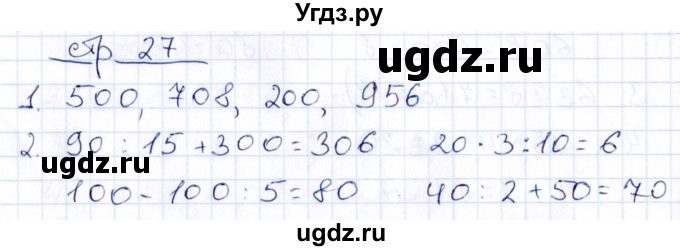 Угдз.ру
стр 27
ugdz.ru
1. 500, 708, 200, 956
2. 90 : 15 + 300 = 306 20 · 3 : 10 = 6
ugdz.ru
ugdz.ru
100 - 100 : 5 = 80 40 : 2 + 50 = 70
ugdz.ru
ugdz.ru